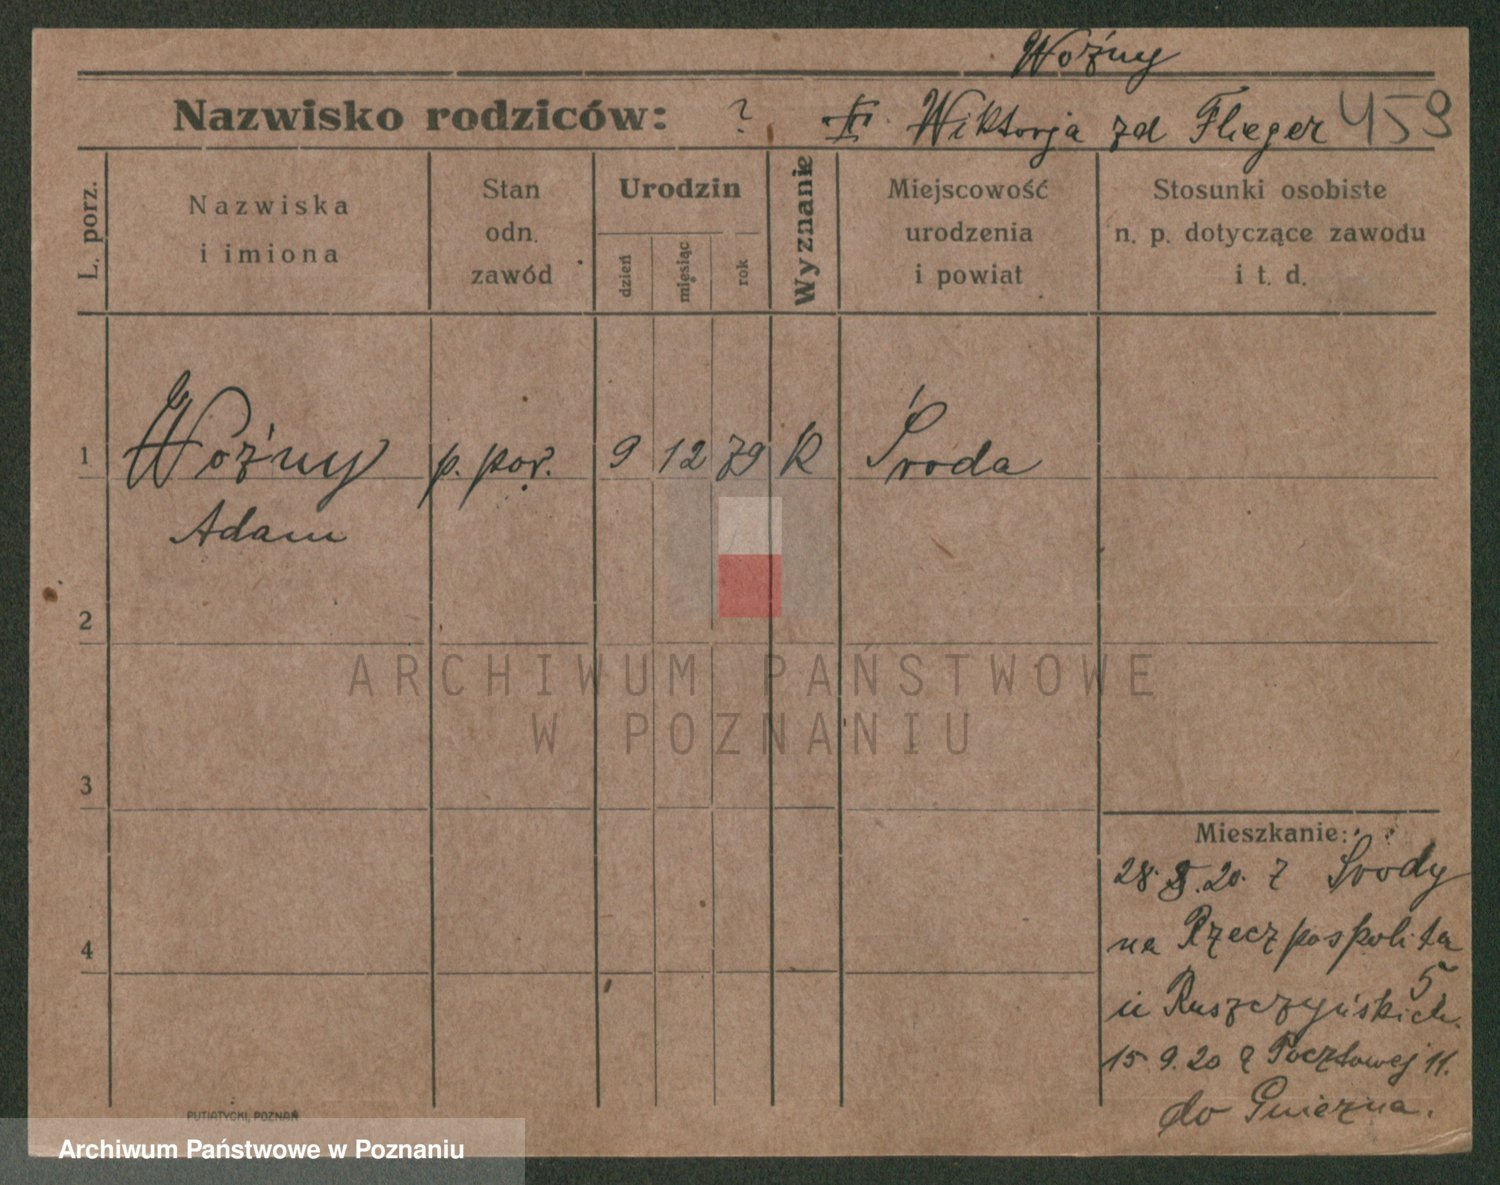 Woźny
Nazwisko rodziców: ? Wiktorja zd Flieger 459
L. porz.
Nazwiska
i imiona
Stan
odn.
zawód
Urodzin
dzień
miesiąc
rok
Wyznanie
Miejscowość
urodzenia
i powiat
Stosunki osobiste
n. p. dotyczące zawodu
i t. d.
1 Woźny p. por. 9 12 79 K Środa
Adam
2
3
4
ARCHIWUM PAŃSTWOWE
W POZNANIU
Mieszkanie:
28. 20. z Środy
na Rzeczpospolita
5
u Ruszczyńskich.
15 9. 20 z Pocztowej 11.
do Gniezna.
PUTIATYCKI, POZNAŃ
Archiwum Państwowe w Poznaniu